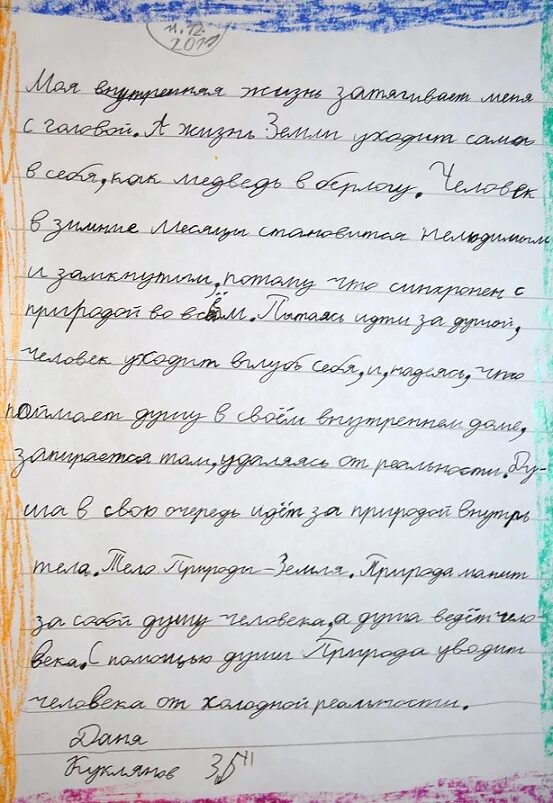 11.12.
2011
Моя внутренняя жизнь затягивает меня
с головой. А жизнь Земли уходит сама
в себя, как медведь в берлогу. Человек
в зимние месяцы становится нелюдимым
и замкнутым, потому что синхронен с
природой во всём. Пытаясь идти за душой,
человек уходит вглубь себя, и, надеясь, что
поймает душу в своём внутреннем доме,
запирается там, удаляясь от реальности. Ду-
ша в свою очередь идёт за природой внутрь
тела. Тело Природы - Земля. Природа манит
за собой душу человека, а душа ведёт чело-
века. С помощью души Природа уводит
человека от холодной реальности.
Даня
Куклянов 3,5"